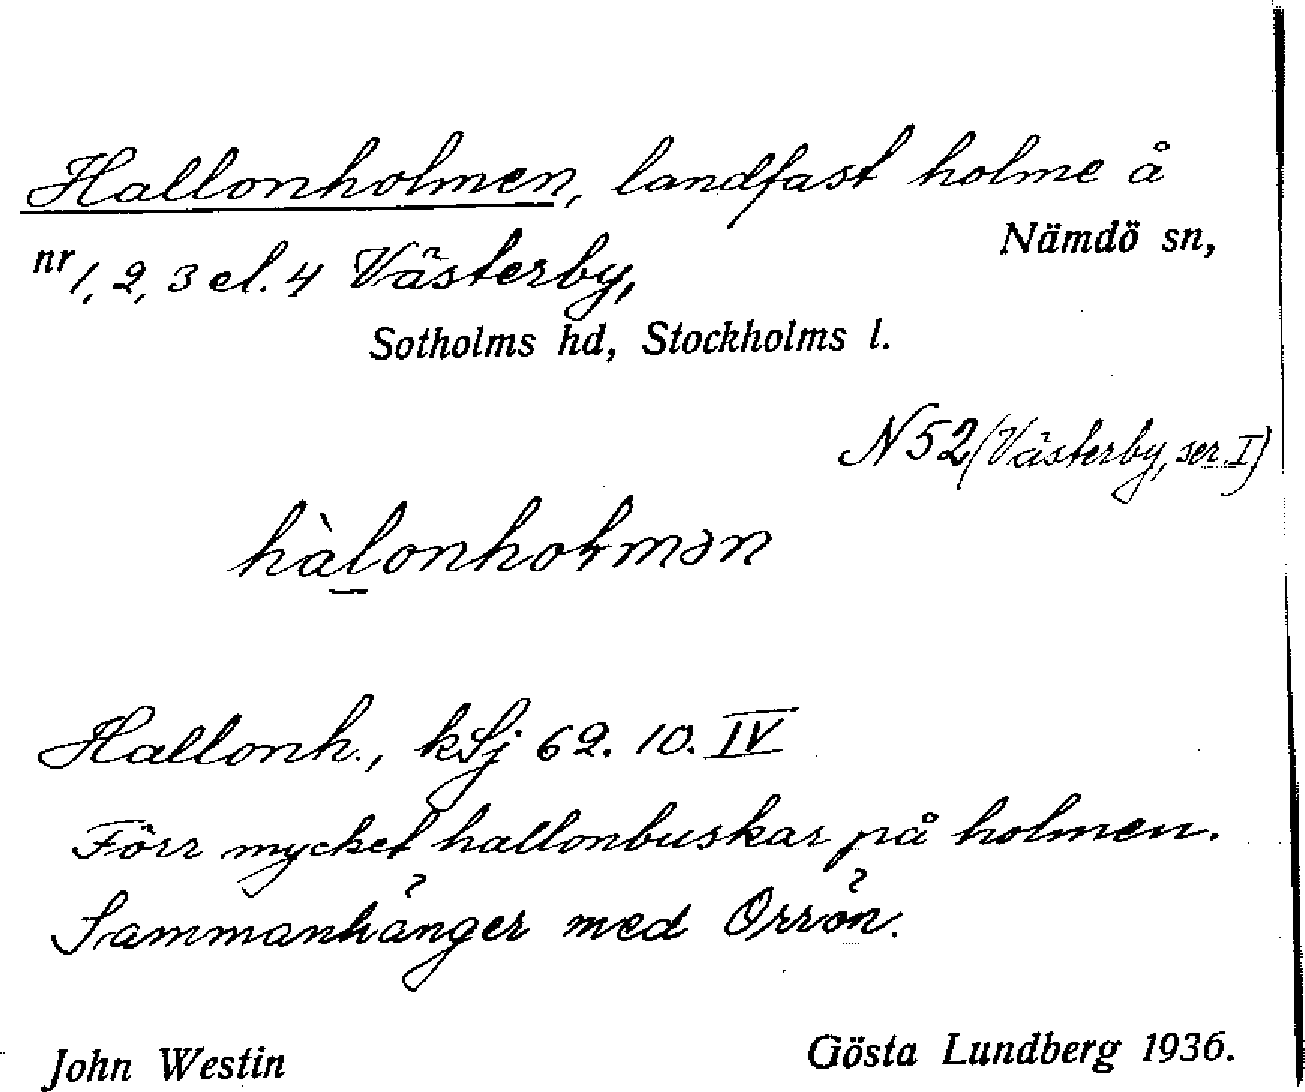 Hallonholmen, landfast holme å
Nämdö sn,
nr 1, 2, 3 el. 4 Västerby,
Sotholms hd, Stockholms l.
N 52 (Västerby, ser. I)
hàlonhołmən
Hallonh., kSj 62. 10. IV
Förr mycket hallonbuskar på holmen.
Sammanhänger med Orrön.
John Westin
Gösta Lundberg 1936.